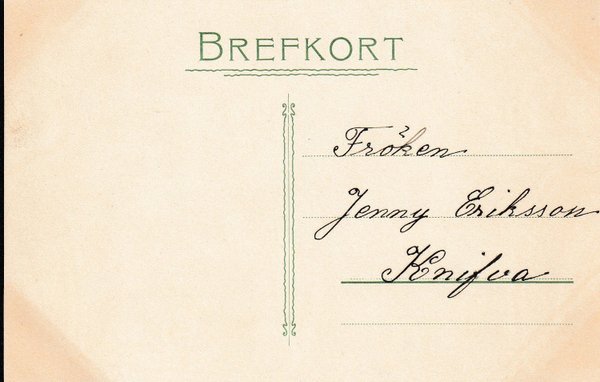 BREFKORT
Fröken
Jenny Eriksson
Knifva